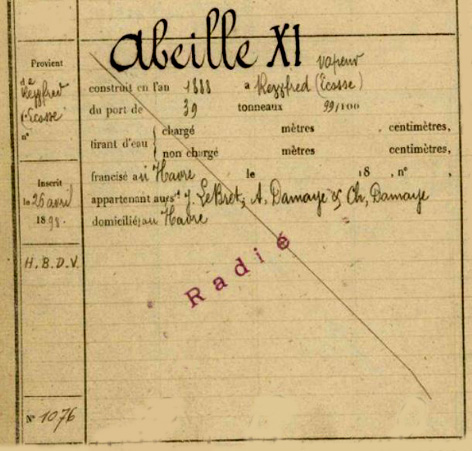 Abeille XI
vapeur
Provient
de
Rezzfred
Ecosse
n°
construit en l'an 1888 a Rezzfred (Ecosse)
du port de 39 tonneaux 99/100
tirant d'eau { chargé mètres , centimètres,
non chargé mètres , centimètres,
francisé au Havre le 18 , n° ,
Inscrit
le 26 avril
1898.
appartenant aux J. LeBret, A. Damaye & Ch, Damaye
domiciliés au Havre
H.B.D.V.
Radié
N° 1076